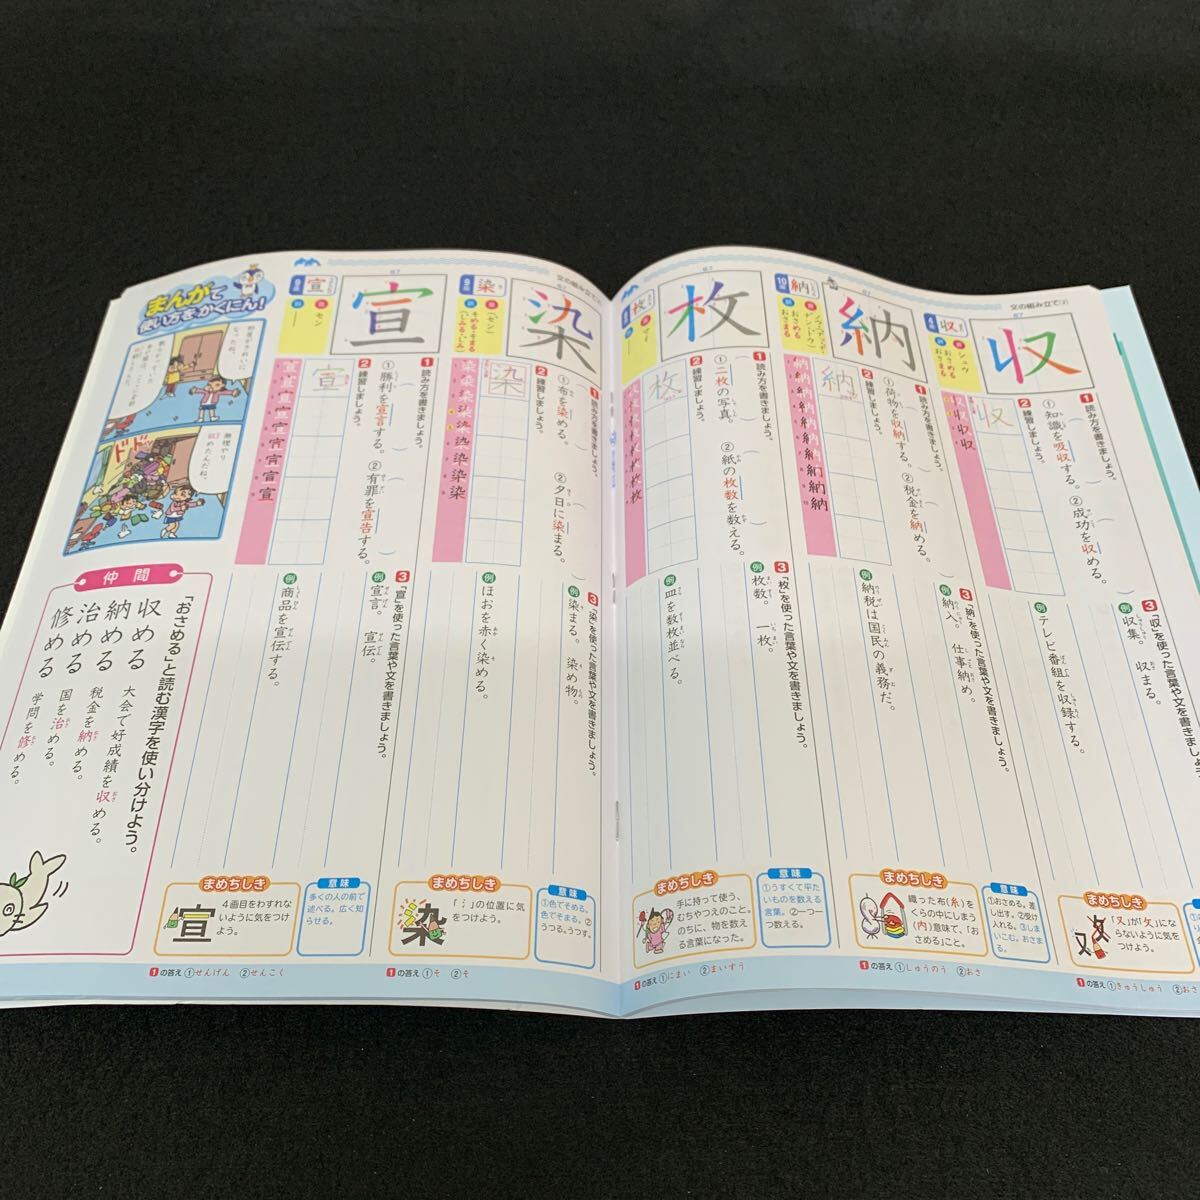 文の組み立て②
収
収
4画
シュウ
おさめる
おさまる
1 読み方を書きましょう。
①知識を吸収する。
②成功を収める。
2 練習しましょう。
収収収収
3 「収」を使った言葉や文を書きましょう。
例 収集。 収まる。
例 テレビ番組を収録する。
まめちしき
「又」が「攵」にな
らないように気を
つけよう。
1の答え ①きゅうしゅう ②おさ
納
納
10画
おさめる
おさまる
1 読み方を書きましょう。
①荷物を収納する。
②税金を納める。
2 練習しましょう。
3 「納」を使った言葉や文を書きましょう。
例 納入。 仕事納め。
例 納税は国民の義務だ。
まめちしき
織った布(糸)を
くらの中にしまう
(内)意味で、「お
さめる」こと。
意味
①おさめる。差し
出す。②受け
入れる。③しま
いこむ。おさま
る。
1の答え ①しゅうのう ②おさ
枚
枚
マイ
1 読み方を書きましょう。
①二枚の写真。
②紙の枚数を数える。
2 練習しましょう。
3 「枚」を使った言葉や文を書きましょう。
例 枚数。 一枚。
例 皿を数枚並べる。
まめちしき
手に持って使う、
むちやつえのこと。
のちに、物を数え
る言葉になった。
意味
①うすくて平た
いものを数える
言葉。②一つ一
つ数える。
1の答え ①にまい ②まいすう
文の組み立て②
染
染
9画
(セン)
そめる・そまる
(しみる・しみ)
1 読み方を書きましょう。
①布を染める。
②夕日に染まる。
2 練習しましょう。
3 「染」を使った言葉や文を書きましょう。
例 染まる。 染め物。
例 ほおを赤く染める。
まめちしき
「氵」の位置に気
をつけよう。
意味
①色でそめる。
色でそまる。②
うつる。うつす。
1の答え ①そ ②そ
宣
宣
9画
セン
1 読み方を書きましょう。
①勝利を宣言する。
②有罪を宣告する。
2 練習しましょう。
3 「宣」を使った言葉や文を書きましょう。
例 宣言。 宣伝。
例 商品を宣伝する。
まめちしき
4画目をわすれな
いように気をつけ
よう。
意味
多くの人の前で
述べる。広く知
らせる。
1の答え ①せんげん ②せんこく
まんがで
使い方をかくにん!
部屋がきれいに
なったね。
無理やり
収めたんだね。
ドドドッ
仲間
「おさめる」と読む漢字を使い分けよう。
収める 大会で好成績を収める。
納める 税金を納める。
治める 国を治める。
修める 学問を修める。